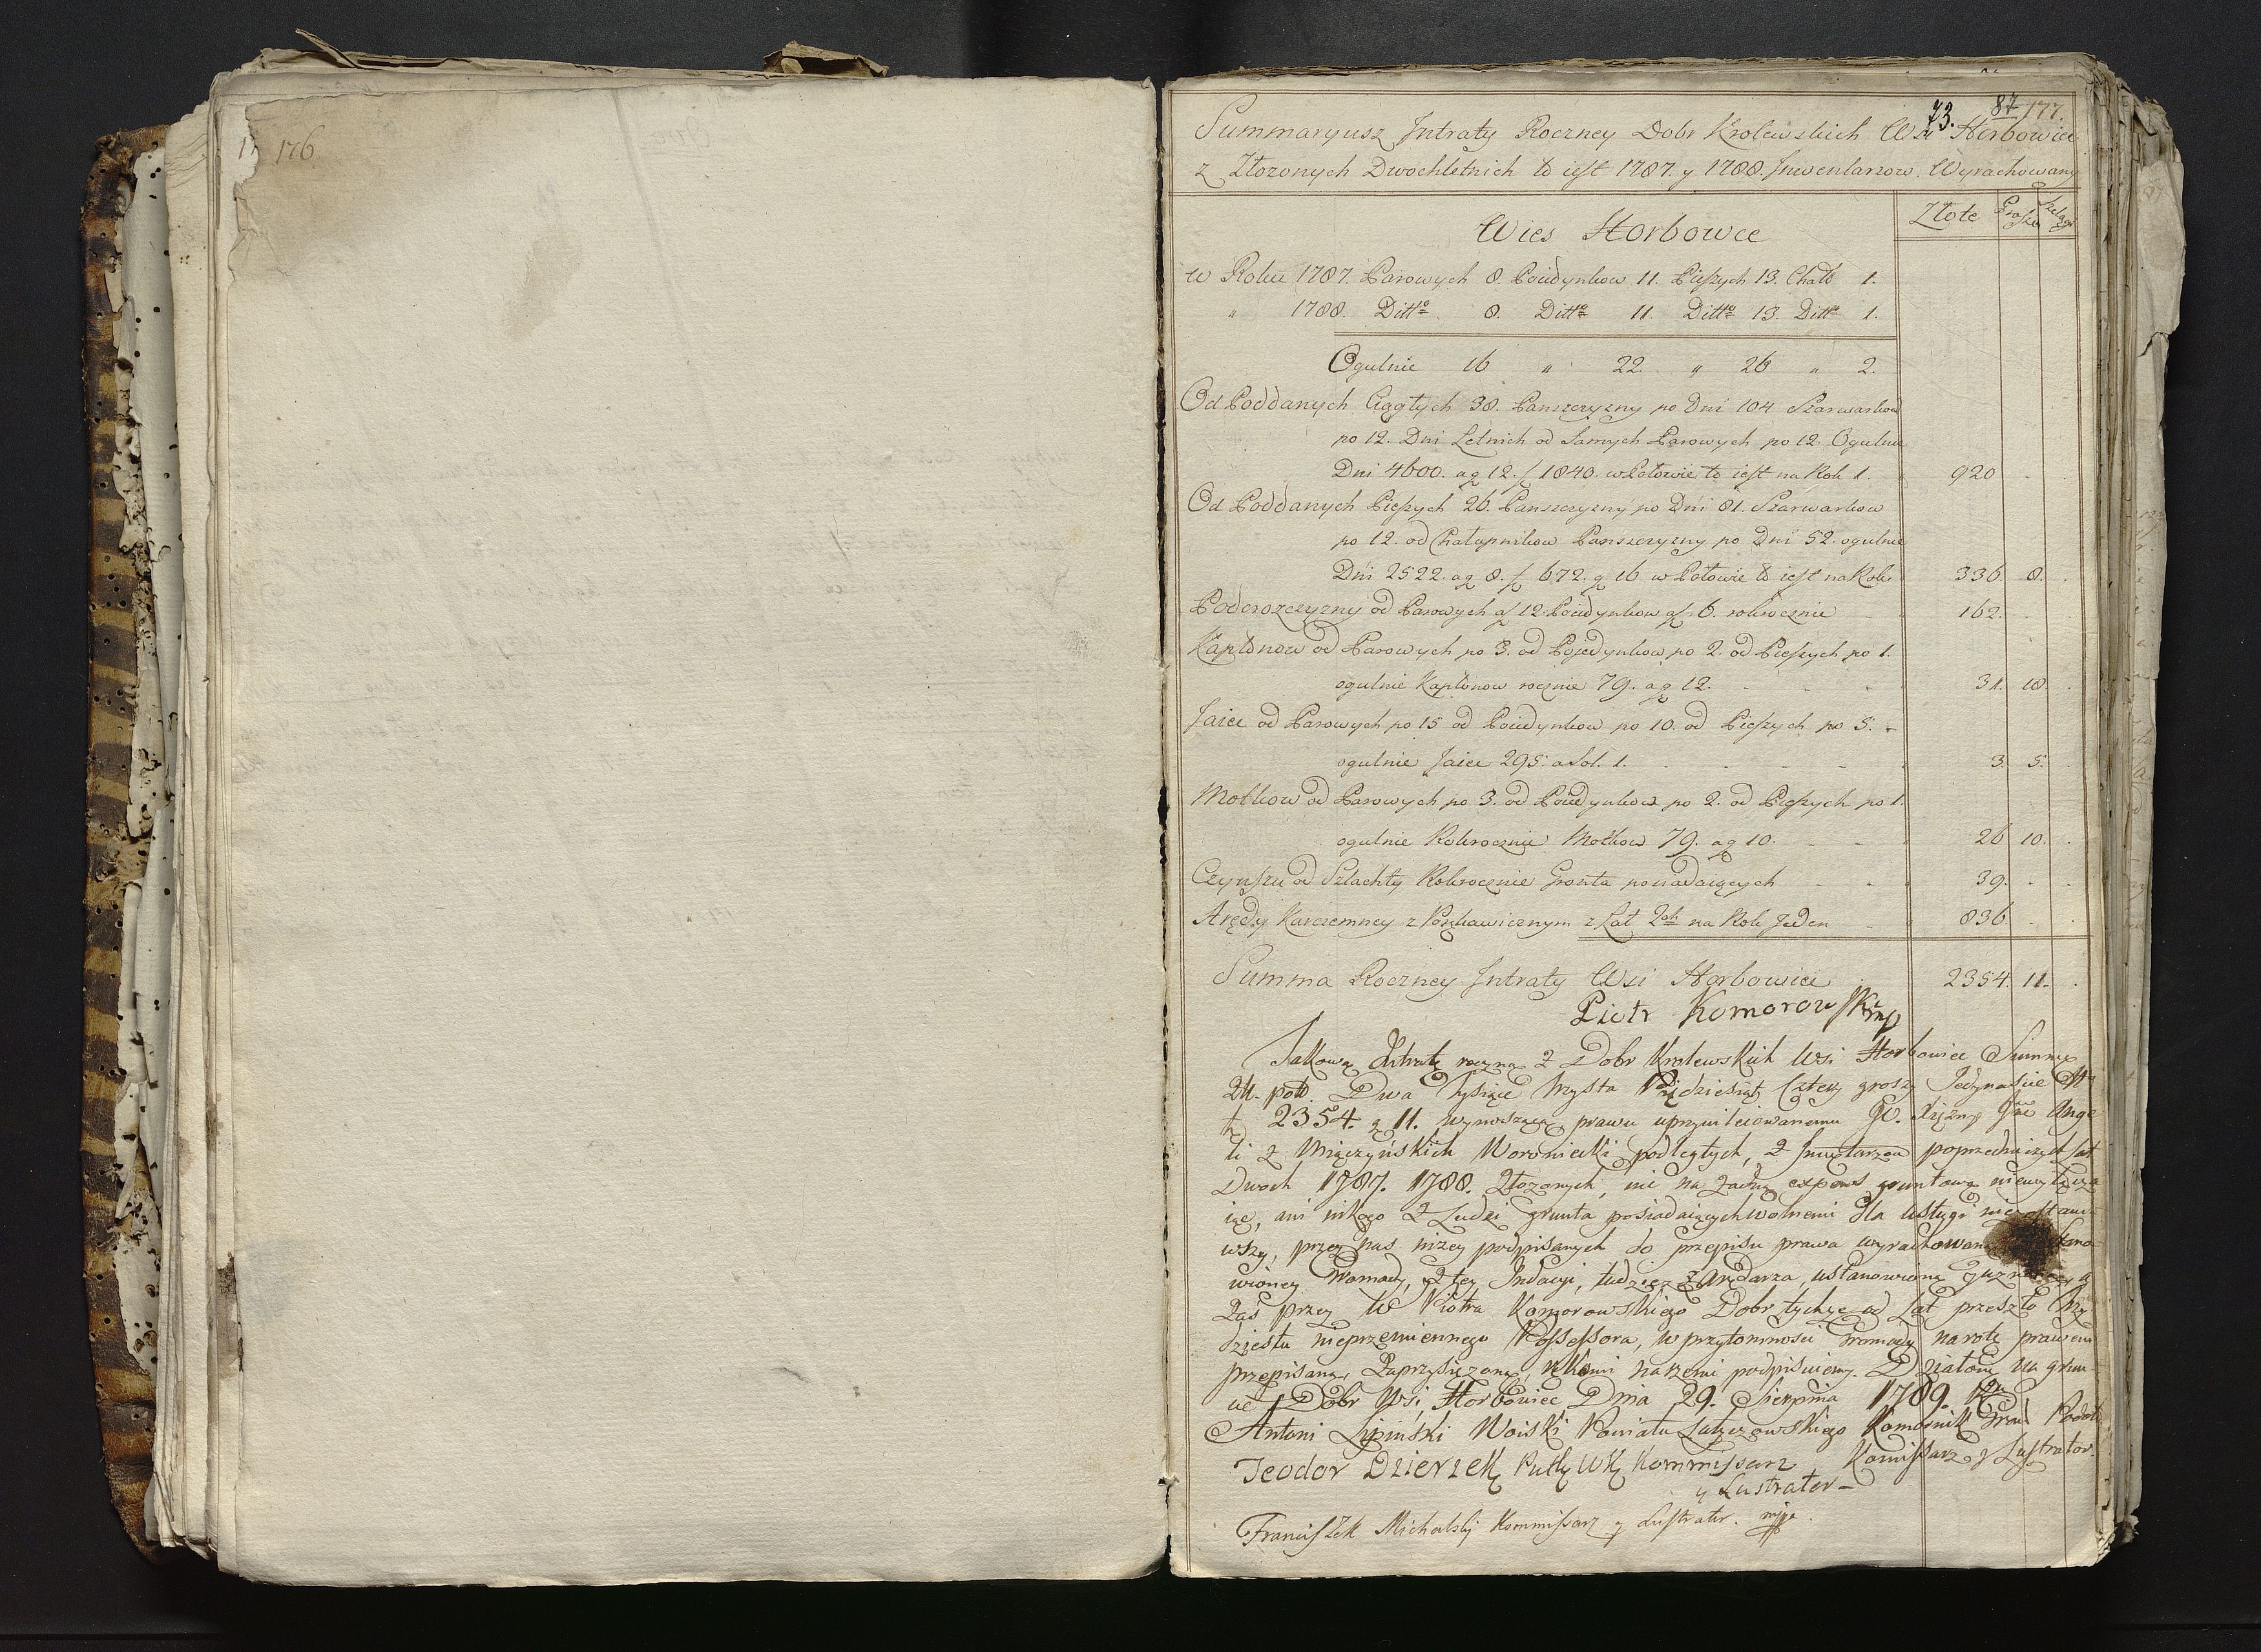 176
73. 87 177.
Summaryusz Intraty Roczney Dobr Krolewskich Wsi Horbowiec
z Złozonych Dwochletnich to iest 1787. y 1788. Inwentarzow Wyrachowany
Złote Grosze Szelągi
Wies Horbowce
w Roku 1787. Parowych 8. Poiedynkow 11. Pieszych 13. Chałt 1.
" 1788. Ditto 8. Ditto 11. Ditto 13. Ditto 1.
Ogulnie 16 " 22. " 26 " 2.
Od Poddanych Ciągłych 38. Panszczyzny po Dni 104 Szarwarkow
po 12. Dni Letnich od Samych Parowych po 12. Ogulnie
Dni 4600. a g 12. f 1840. w Połowie to iest na Rok 1. 920 . .
Od Poddanych Pieszych 26. Panszczyzny po Dni 81. Szarwarkow
po 12. od Chałupnikow Panszczyzny po Dni 52. ogulnie
Dni 2522. a g 8. f 672. g 16 w Połowie to iest na Rok 336. 8. .
Podorożczyzny od Parowych a f 12. Poiedynkow a f 6. rokrocznie 162. . .
Kapłonow od Parowych po 3. od Pojedynkow po 2. od Pieszych po 1.
ogulnie Kapłonow rocznie 79. a g 12. 31. 18. .
Jaiec od Parowych po 15 od Poiedynkow po 10. od Pieszych po 5.
ogulnie Jaiec 295. a Sol. 1. 3. 5. .
Motkow od Parowych po 3. od Poiedynkow po 2. od Pieszych po 1.
ogulnie Rokrocznie Motkow 79. a g 10. 26 10. .
Czynszu od Szlachty Rokrocznie Gronta posiadaiących 39. . .
Arędy Karczemney z Pożkawicznym z Lat 2ch na Rok Jeden 836. . .
Summa Roczney Intraty Wsi Horbowiec 2354 11. .
Piotr Komorowski mp
Jakową Intratę roczną z Dobr Krolewskich Wsi Horbowiec Summę
Zł. pol. Dwa Tysiące Trzysta Pięćdziesiąt Cztery groszy Jedynascie
2354. g 11. wynoszącą prawu uprzywileiowanemu Xiężny Ange
li z Miączyńskich Woroniecki podległych, z Inwętarzow poprzedniczych lat
Dwoch 1787. 1788. Złozonych, nic na żadną expens gruntową niewyłącza
iąc, ani nikogo z Ludzi grunta posiadaiących wolnemi dla usługi nie ostawi
wszy, przez nas nizey podpisanych do przepisu prawa wyrachowaną
wioney Gromady, z tey Indagi, tudziez z Arędarza, ustanowioną
Zaś przez W Piotra Komorowskiego Dobr tychże od Lat przeszło trzy
dziestu nieprzemiennego Possessora, w przytomnosci Gromady na rotę prawem
przepisaną, Zaprzysiężoną, rękami naszemi podpisuiemy. Działo się na grun
cie Dobr Wsi Horbowiec Dnia 29. Sierpnia 1789. Ru
Antoni Lipiński Woiski Powiatu Latyczowskiego Komornik Gran. Podol.
Komissarz y Lustrator.
Teodor Dzierzek Putk WK Kommissarz
y Lustrator –
Franciszek Michalski Kommissarz y Lustrator. mppa.